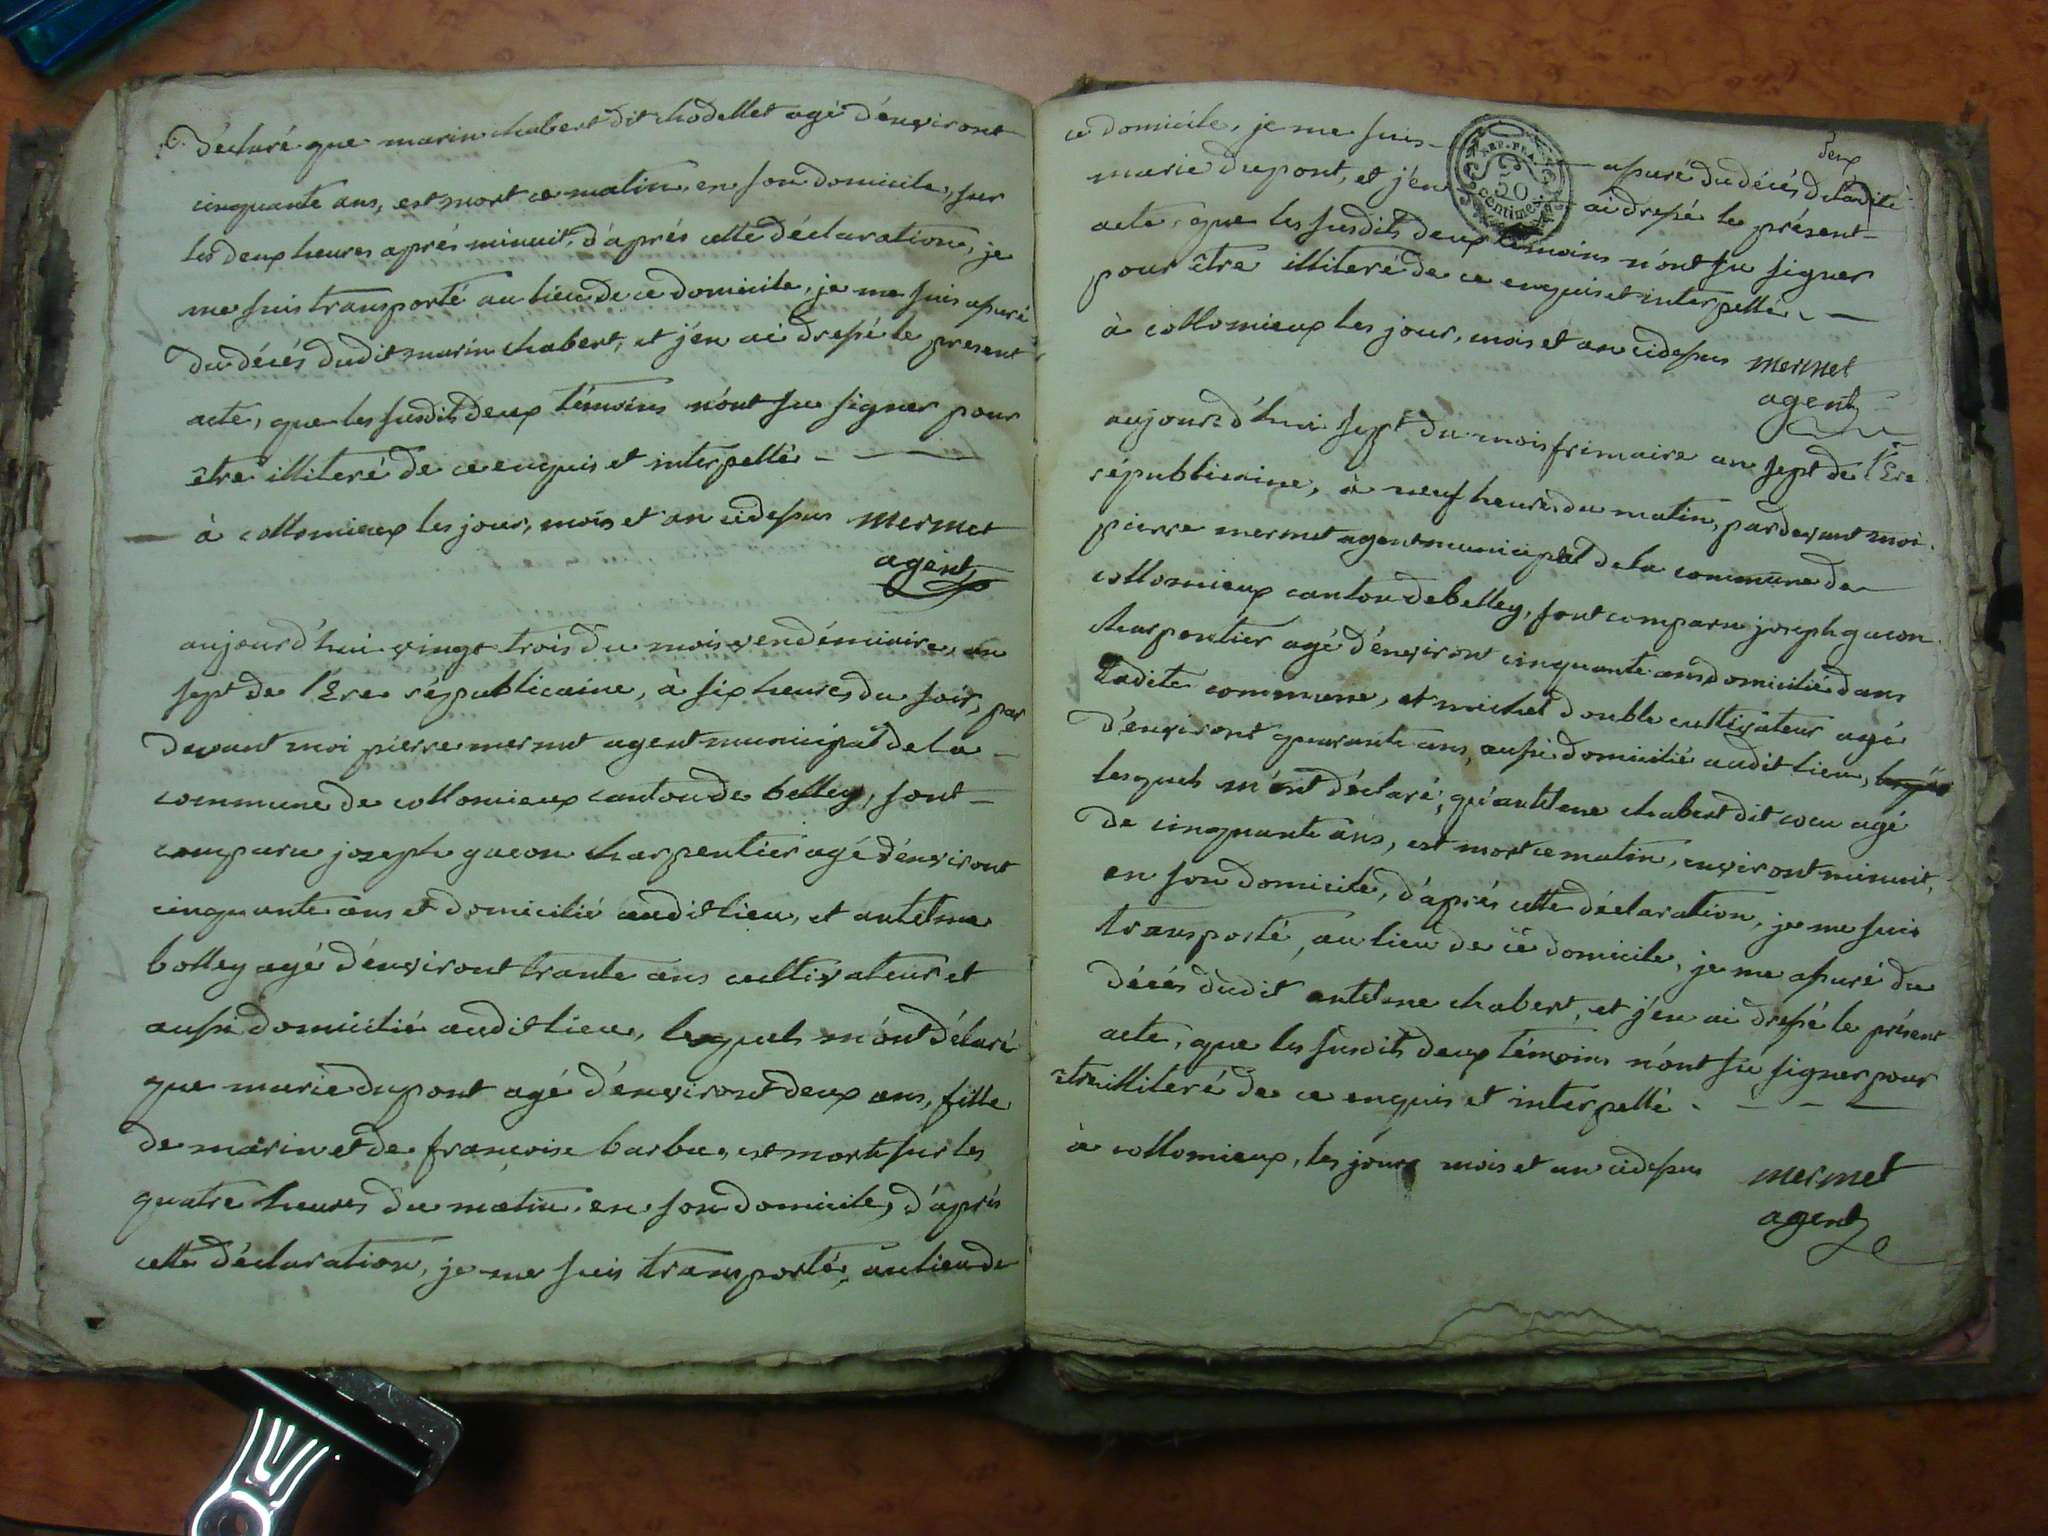 déclaré que marin chabert dit chodellet agé d'environt
cinquante ans, est mort ce matin, en son domicile, sur
les deux heures aprés minuit, d'aprés cette déclaration, je
me suis transporté au lieu de ce domicile, je me suis assuré
du décés dudit marin chabert, et j'én ai dressé le present
acte, que les susdits deux témoins n'ont su signer pour
etre illiteré de ce enquis et interpellé
à collomieux les jour, mois et an cidessus mermet
agent
aujourd'hui vingt trois du mois vendémiaire, an
sept de l'Ere républicaine, à six heures du soir, par
devant moi pierre mermet agent municipal de la
commune de collomieux canton de belley, sont
comparu joseph gacon charpentier agé d'environt
cinquante ans et domicilié audit lieu, et antelme
bolley agé d'environt trante ans cultivateur et
aussi domicilié audit lieu, lesquels m'ont délaré
que marie dupont agé d'environt deux ans, fille
de marin et de françoise barbe, est morte sur les
quatre heures du matin, en son domicile, d'aprés
cette déclaration, je me suis transporté, au lieu de
deux
ce domicile, je me suis assuré du décés de ladite
REP. FRA.
50
centimes
marie dupont, et j'én ai dressé le présent
acte, que les susdits deux témoins n'ont su signer
pour être illiteré de ce enquis et interpellé
à collomieux les jour, mois et an cidessus mermet
agent
aujourd'hui sept du mois frimaire an sept de l'Ere
républicaine, à neuf heures du matin, pardevant moi
pierre mermet agent municipal de la commune de
collomieux canton de belley, sont comparu joseph gacon
charpentier agé d'environt cinquante ans domicilié dans
ladite commune, et michel double cultivateur agé
d'environt quarante ans, aussi domicilié audit lieu,
lesquels m'ont déclaré, qu'antelme chabert dit cocu agé
de cinquante ans, est mort ce matin, environt minuit,
en son domicile, d'aprés cette déclaration, je me suis
transporté, au lieu de ce domicile, je me assuré du
décés dudit antelme chabert, et j'én ai dressé le présent
acte, que les susdits deux témoins n'ont su signer pour
etre illiteré de ce enquis et interpellé
à collomieux, les jours mois et an cidessus mermet
agent